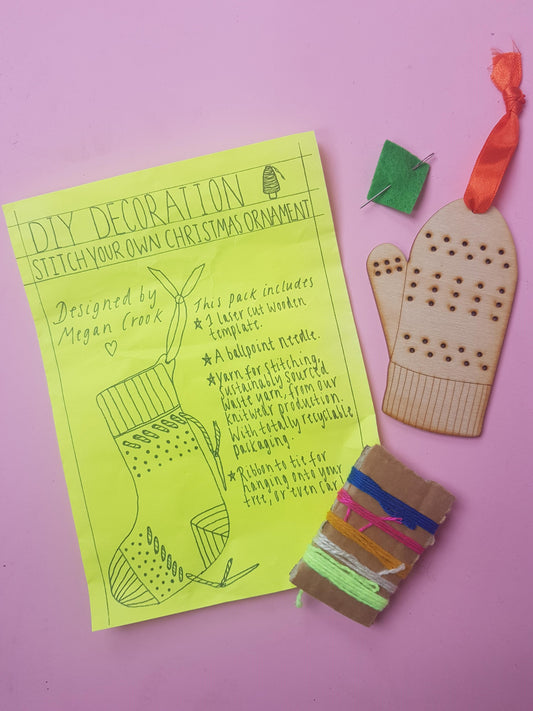 DIY DECORATION
STITCH YOUR OWN CHRISTMAS ORNAMENT
Designed by
Megan Crook
This pack includes
1 laser cut wooden
template.
A ballpoint needle.
Yarn for stitching,
sustainably sourced
waste yarn, from our
knitwear production.
With totally recyclable
packaging.
Ribbon to tie for
hanging onto your
tree, or even car!